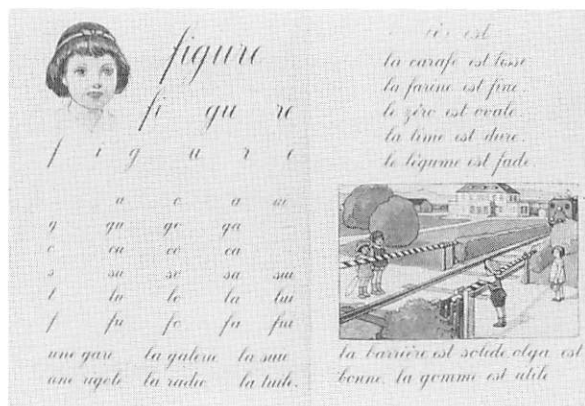 figure
fi gu re
f i g u r e
u o a ui
g gu go ga
c cu co ca
s su so sa sui
l lu lo la lui
f fu fo fa fui
une gare la galerie la suie
une rigole la radio la tuile.
est
la carafe est lisse
la farine est fine.
le zéro est ovale.
la lime est dure.
le légume est fade.
la barrière est solide. olga est
bonne. la gomme est utile